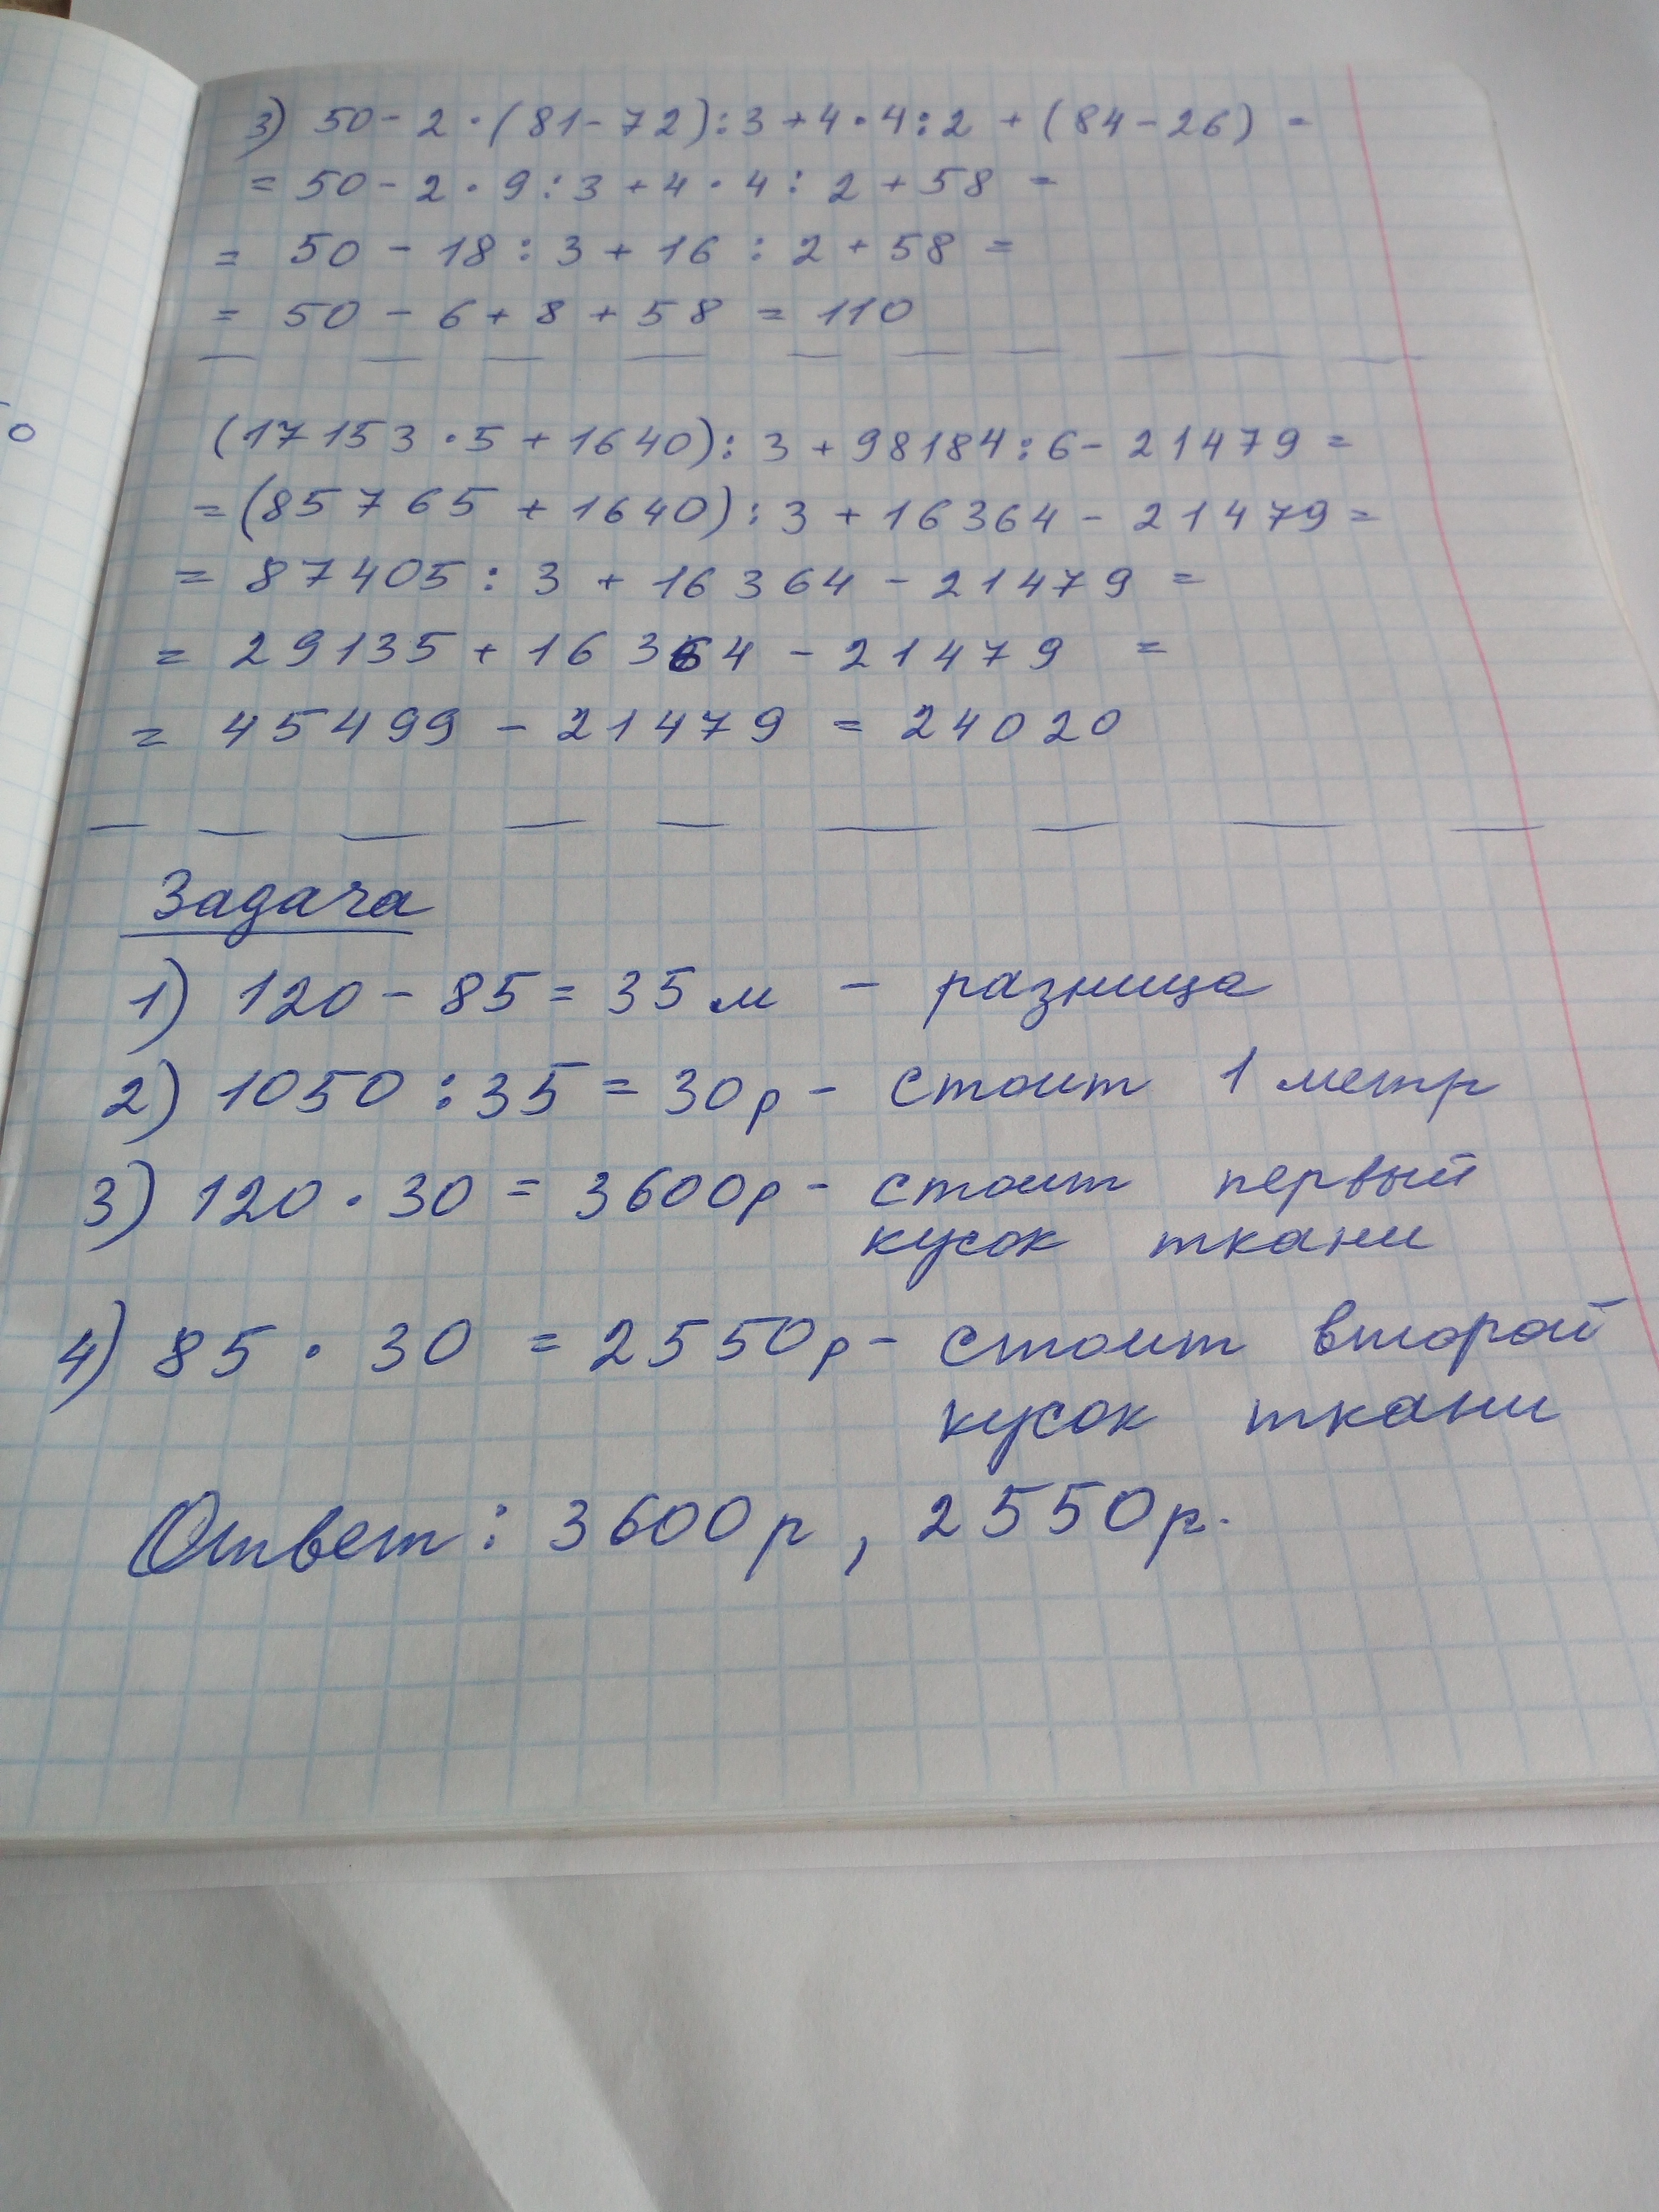 3) 50 - 2 · (81 - 72) : 3 + 4 · 4 : 2 + (84 - 26) =
= 50 - 2 · 9 : 3 + 4 · 4 : 2 + 58 =
= 50 - 18 : 3 + 16 : 2 + 58 =
= 50 - 6 + 8 + 58 = 110
(17153 · 5 + 1640) : 3 + 98184 : 6 - 21479 =
= (85765 + 1640) : 3 + 16364 - 21479 =
= 87405 : 3 + 16364 - 21479 =
= 29135 + 16364 - 21479 =
= 45499 - 21479 = 24020
Задача
1) 120 - 85 = 35 м - разница
2) 1050 : 35 = 30р - стоит 1 метр
3) 120 · 30 = 3600р - стоит первый
кусок ткани
4) 85 · 30 = 2550р - стоит второй
кусок ткани
Ответ: 3600р, 2550р.